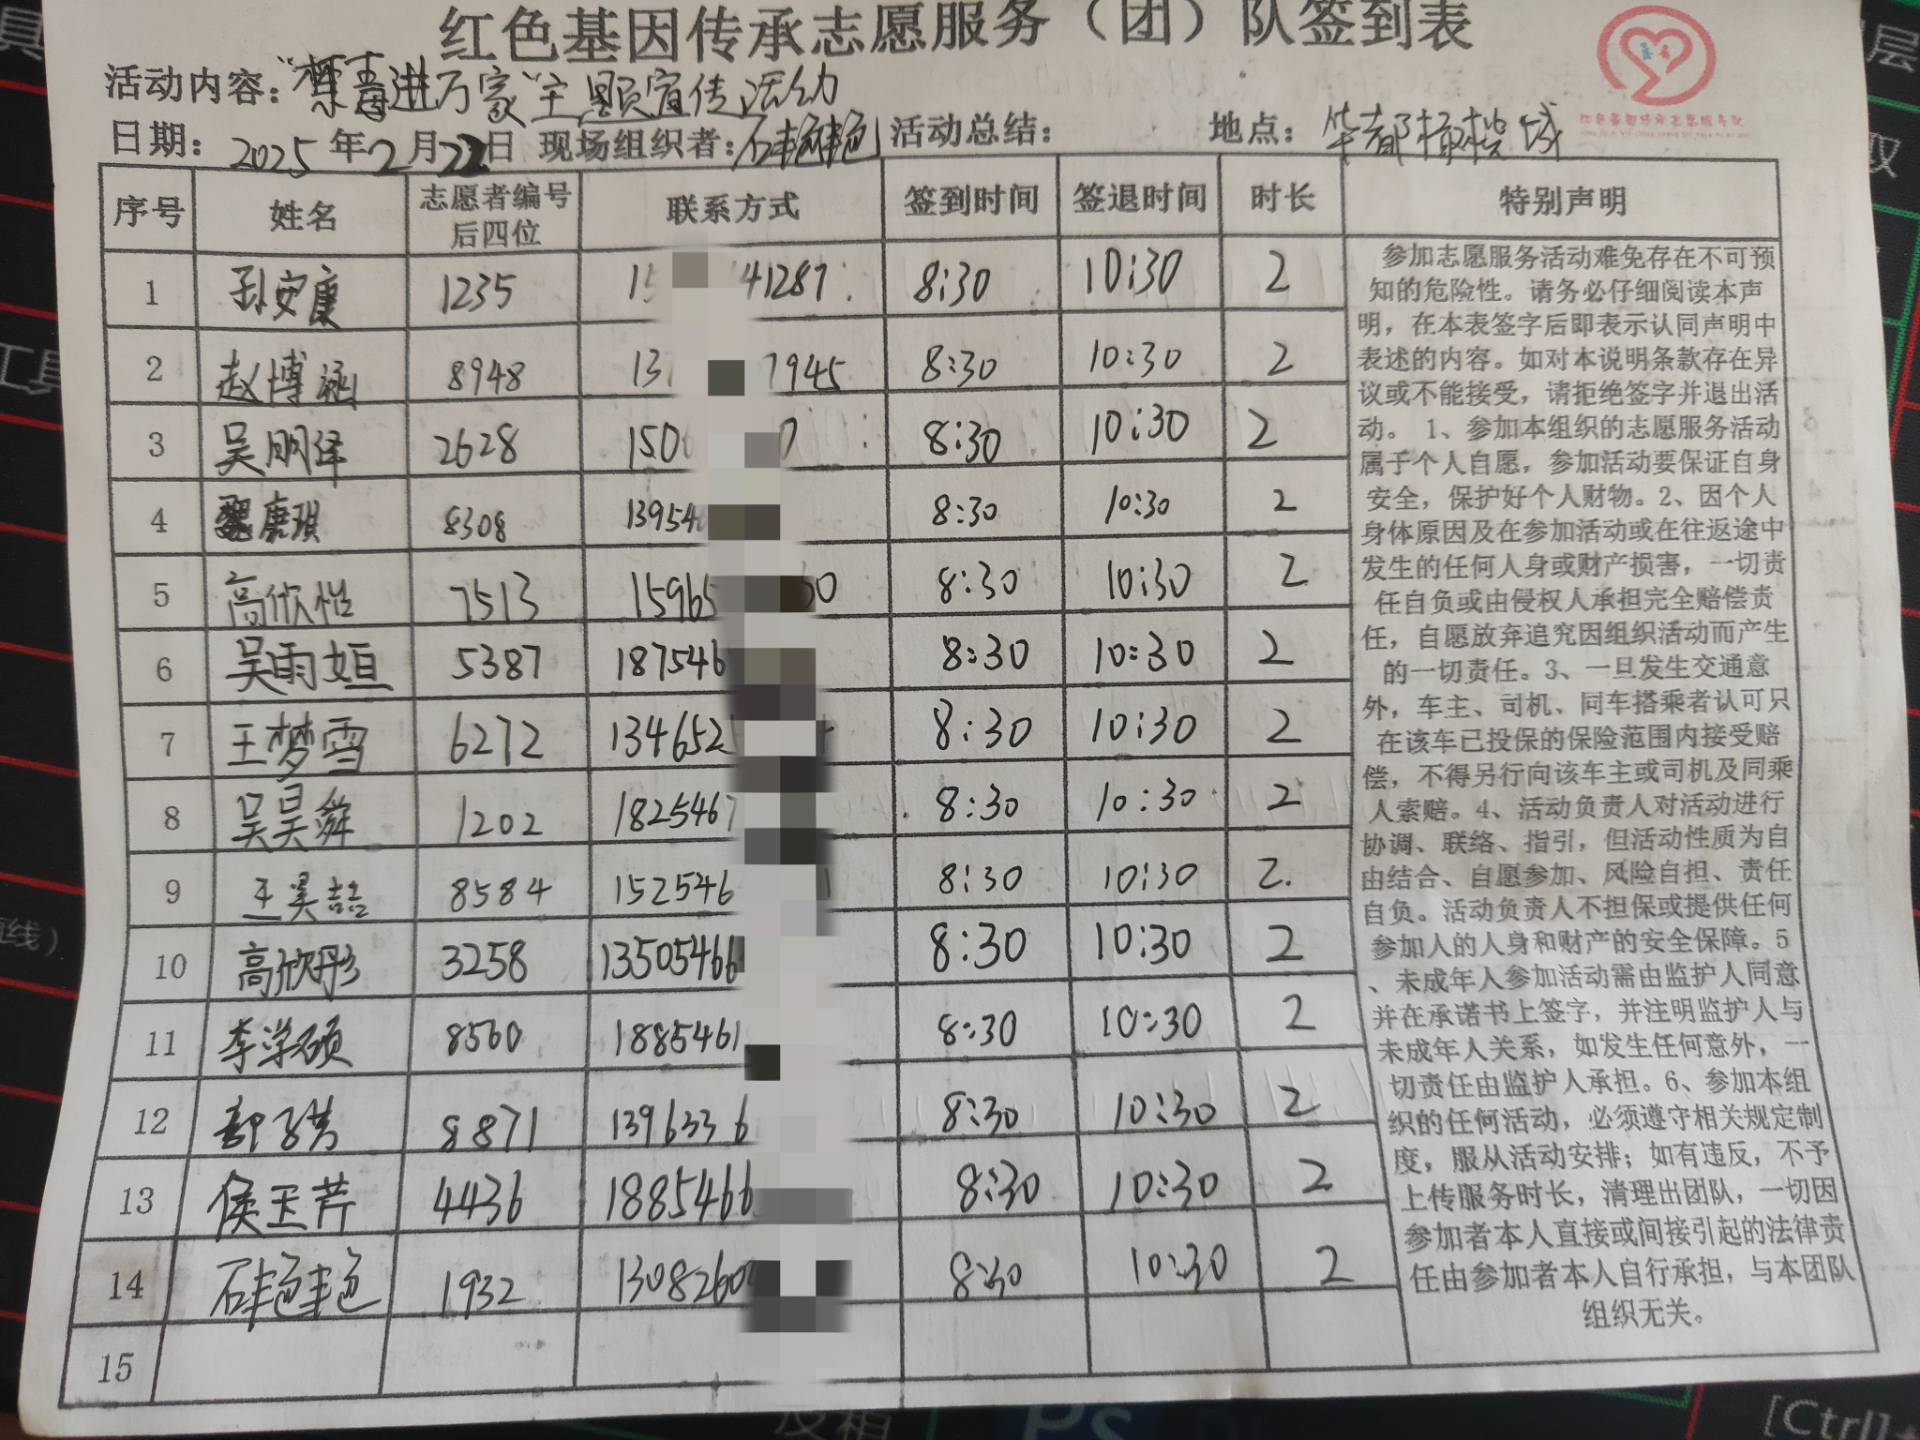 红色基因传承志愿服务（团）队签到表
活动内容：“禁毒进万家”主题宣传活动
日期：2025年2月22日 现场组织者：石艳艳 活动总结： 地点：华都橄榄城
序号 姓名 志愿者编号后四位 联系方式 签到时间 签退时间 时长 特别声明
1 孙安康 1235 15 41287 8:30 10:30 2
2 赵博涵 8948 13 7945 8:30 10:30 2
3 吴明泽 2628 150 0 8:30 10:30 2
4 魏唐琪 8308 13954 8:30 10:30 2
5 高欣怡 7513 15965 30 8:30 10:30 2
6 吴雨姮 5387 187546 8:30 10:30 2
7 王梦雪 6272 134652 8:30 10:30 2
8 吴昊舜 1202 1825467 8:30 10:30 2
9 王昊喆 8584 152546 8:30 10:30 2.
10 高欣彤 3258 13505466 8:30 10:30 2
11 李学硕 8560 1885461 8:30 10:30 2
12 8871 1396336 8:30 10:30 2
13 侯玉芹 4436 1885466 8:30 10:30 2
14 石艳艳 1932 1308260 8:30 10:30 2
15
参加志愿服务活动难免存在不可预
知的危险性。请务必仔细阅读本声
明，在本表签字后即表示认同声明中
表述的内容。如对本说明条款存在异
议或不能接受，请拒绝签字并退出活
动。 1、参加本组织的志愿服务活动
属于个人自愿，参加活动要保证自身
安全，保护好个人财物。2、因个人
身体原因及在参加活动或在往返途中
发生的任何人身或财产损害，一切责
任自负或由侵权人承担完全赔偿责
任，自愿放弃追究因组织活动而产生
的一切责任。3、一旦发生交通意
外，车主、司机、同车搭乘者认可只
在该车已投保的保险范围内接受赔
偿，不得另行向该车主或司机及同乘
人索赔。4、活动负责人对活动进行
协调、联络、指引，但活动性质为自
由结合、自愿参加、风险自担、责任
自负。活动负责人不担保或提供任何
参加人的人身和财产的安全保障。5
、未成年人参加活动需由监护人同意
并在承诺书上签字，并注明监护人与
未成年人关系，如发生任何意外，一
切责任由监护人承担。6、参加本组
织的任何活动，必须遵守相关规定制
度，服从活动安排；如有违反，不予
上传服务时长，清理出团队，一切因
参加者本人直接或间接引起的法律责
任由参加者本人自行承担，与本团队
组织无关。